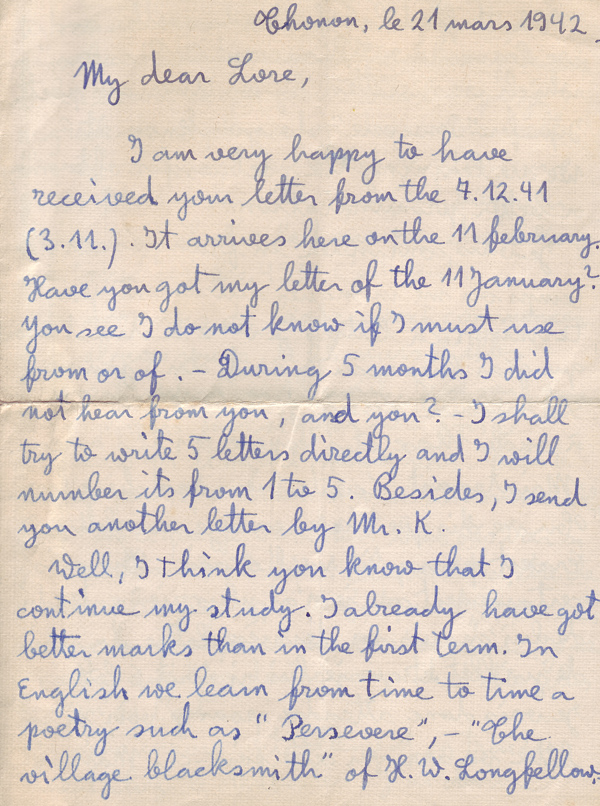 Thonon, le 21 mars 1942.
My dear Lore,
I am very happy to have
received your letter from the 7.12.41
(3.11.). It arrives here on the 11 february.
Have you got my letter of the 11 January?
You see I do not know if I must use
from or of. – During 5 months I did
not hear from you, and you? – I shall
try to write 5 letters directly and I will
number its from 1 to 5. Besides, I send
you another letter by Mr. K.
Well, I think you know that I
continue my study. I already have got
better marks than in the first term. In
English we learn from time to time a
poetry such as "Persevere", – "The
village blacksmith" of H. W. Longfellow.